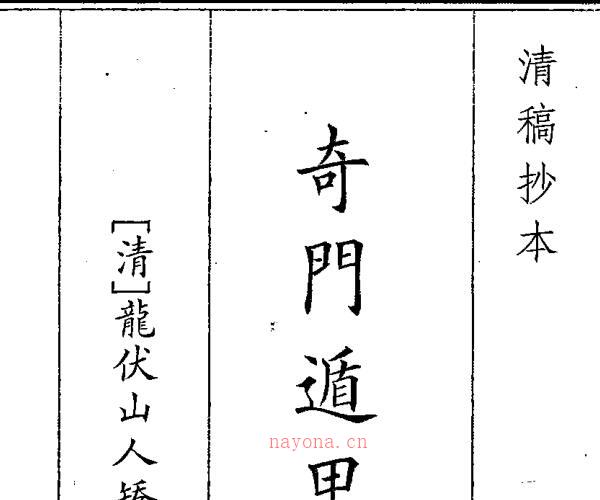 清稿抄本
奇門遁甲
[清]龍伏山人矯
nayona.cn